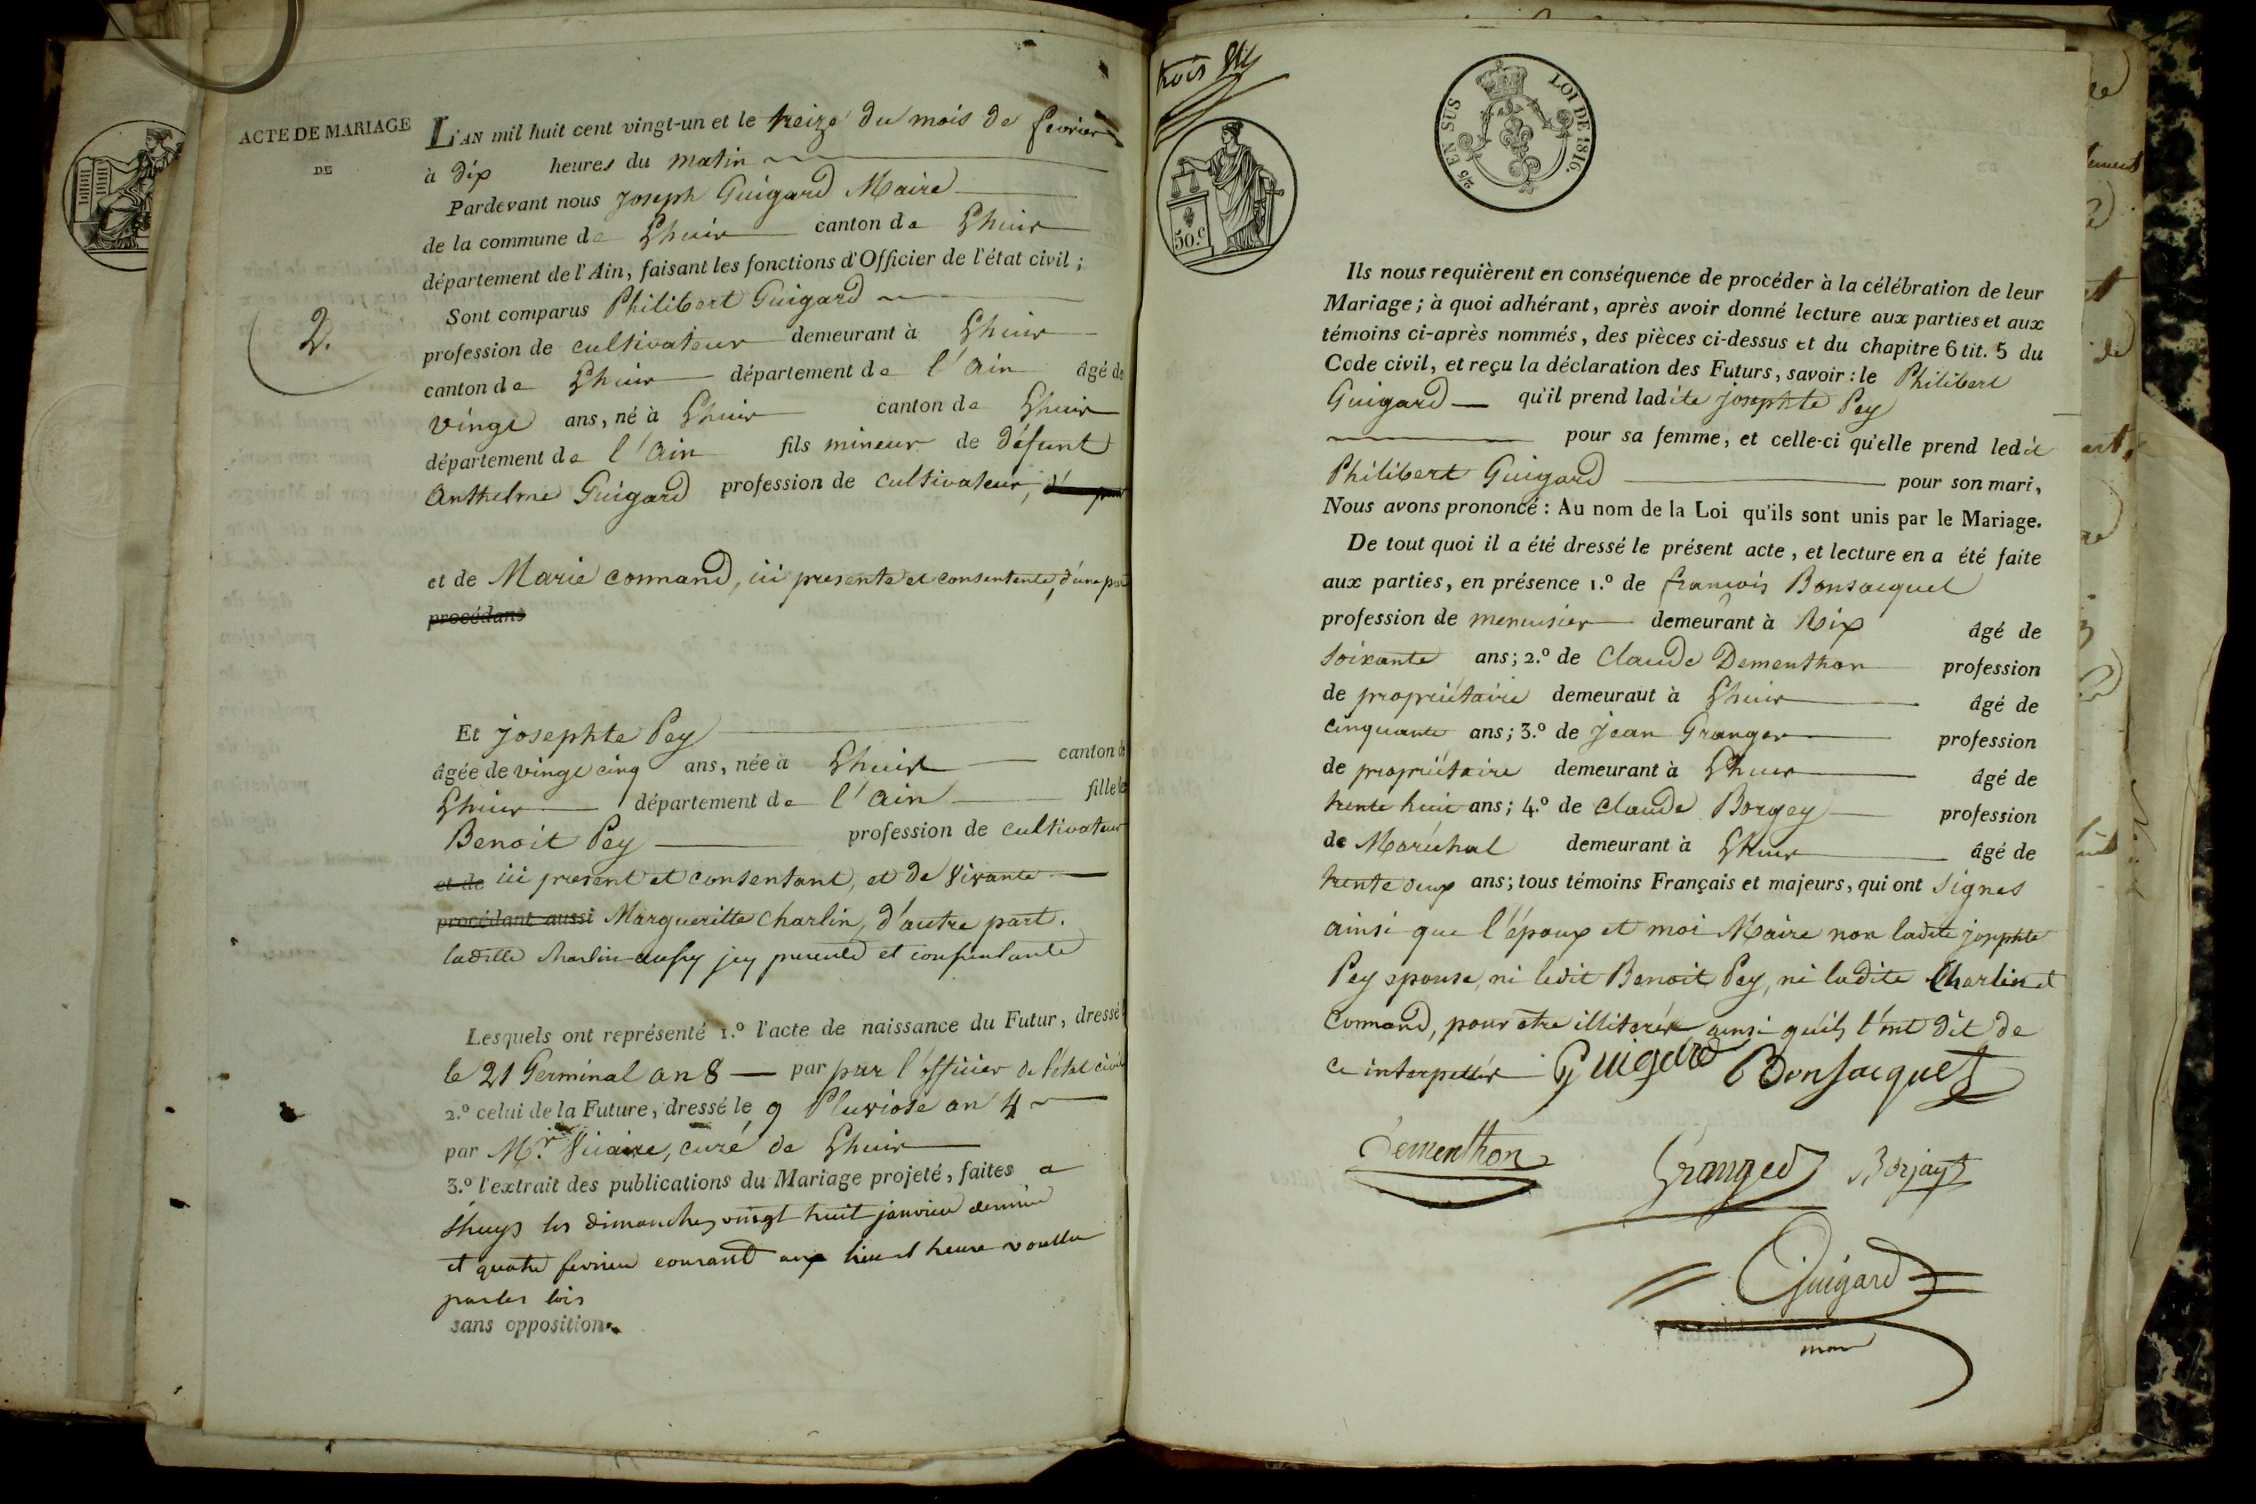 ACTE DE MARIAGE
DE
2.
L'AN mil huit cent vingt-un et le treize du mois de fevrier
à dix heures du matin
Pardevant nous joseph Guigard Maire
de la commune de Lhuis canton de Lhuis
département de l'Ain, faisant les fonctions d'Officier de l'état civil ;
Sont comparus Philibert Guigard
profession de cultivateur demeurant à Lhuis
canton de Lhuis département de l'Ain âgé de
vingt ans, né à Lhuis canton de Lhuis
département de l'Ain fils mineur de défunt
Anthelme Guigard profession de cultivateur,
et de Marie connand, ici presente et consentente, d'une par
procédans
Et josephte Pey
âgée de vingt cinq ans, née à Lhuis canton de
Lhuis département de l'Ain fille de
Benoit Pey profession de cultivateur
et de ici present et consentant, et de vivante
procédant aussi Margueritte Charlin, d'autre part.
laditte Charlin aussy jcy presente et consentante
Lesquels ont représenté 1.º l'acte de naissance du Futur, dressé
le 21 Germinal an 8 par par l'officier de l'état civil
2.º celui de la Future, dressé le 9 Pluviose an 4
par M.r Vicaire, curé de Lhuis
3.º l'extrait des publications du Mariage projeté, faites a
Lhuys les dimanches vingt huit janvier dernier
et quatre fevrier courant aux lieu et heure voullu
par les lois
sans opposition.
trois
50.c
2/5 EN SUS
LOI DE 1816.
Ils nous requièrent en conséquence de procéder à la célébration de leur
Mariage ; à quoi adhérant, après avoir donné lecture aux parties et aux
témoins ci-après nommés, des pièces ci-dessus et du chapitre 6 tit. 5 du
Code civil, et reçu la déclaration des Futurs, savoir : le Philibert
Guigard qu'il prend ladite josephte Pey
pour sa femme, et celle-ci qu'elle prend ledit
Philibert Guigard pour son mari,
Nous avons prononcé : Au nom de la Loi qu'ils sont unis par le Mariage.
De tout quoi il a été dressé le présent acte, et lecture en a été faite
aux parties, en présence 1.º de françois Bonsacquet
profession de menuisier demeurant à Rix âgé de
soixante ans ; 2.º de Claude Dementhon profession
de propriétaire demeurant à Lhuis âgé de
cinquante ans ; 3.º de Jean Granger profession
de propriétaire demeurant à Lhuis âgé de
trente huit ans ; 4.º de claude Borgey profession
de Maréchal demeurant à Lhuis âgé de
trente deux ans ; tous témoins Français et majeurs, qui ont signés
ainsi que l'époux et moi Maire non ladite josephte
Pey epouse, ni ledit Benoit Pey, ni ladite Charlin et
Connand, pour etre illiterés ainsi qu'ils l'ont dit de
ce interpellés Guigard Bonsacquet
Dementhon Granged Borjayt
Guigard